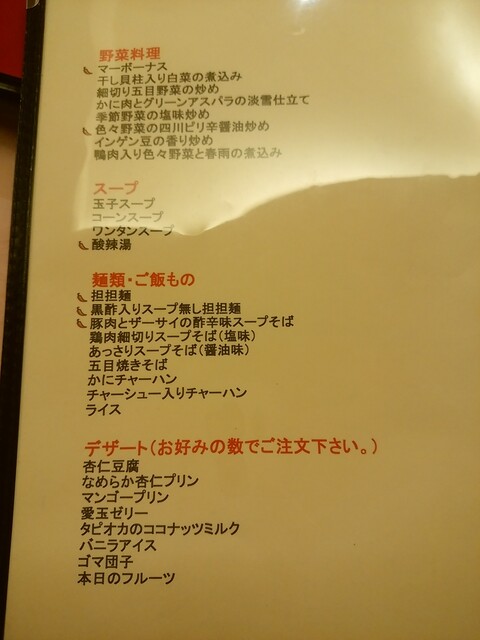 野菜料理
マーボーナス
干し貝柱入り白菜の煮込み
細切り五目野菜の炒め
かに肉とグリーンアスパラの淡雪仕立て
季節野菜の塩味炒め
色々野菜の四川ピリ辛醤油炒め
インゲン豆の香り炒め
鴨肉入り色々野菜と春雨の煮込み
スープ
玉子スープ
コーンスープ
ワンタンスープ
酸辣湯
麺類・ご飯もの
担担麺
黒酢入りスープ無し担担麺
豚肉とザーサイの酢辛味スープそば
鶏肉細切りスープそば(塩味)
あっさりスープそば(醤油味)
五目焼きそば
かにチャーハン
チャーシュー入りチャーハン
ライス
デザート(お好みの数でご注文下さい。)
杏仁豆腐
なめらか杏仁プリン
マンゴープリン
愛玉ゼリー
タピオカのココナッツミルク
バニラアイス
ゴマ団子
本日のフルーツ